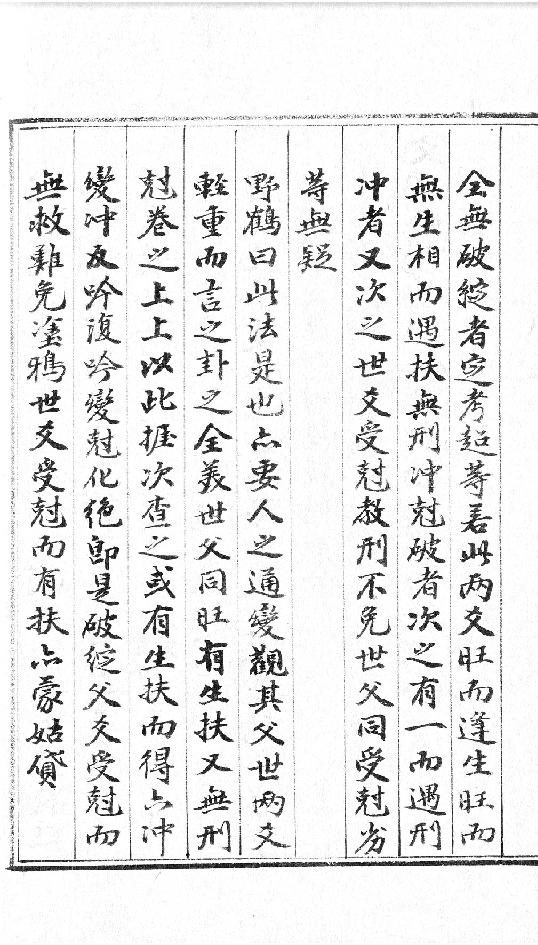 全無破綻者定考超等若此两爻旺而逢生旺而
無生相而遇扶無刑冲尅破者次之有一而遇刑
冲者又次之世爻受尅敎刑不免世父同受尅劣
等無疑
野鶴曰此法是也亦要人之通變觀其父世两爻
輊重而言之卦之全美世父同旺有生扶又無刑
尅卷之上上以此挨次查之或有生扶而得六冲
變冲反吟復吟變尅化絶即是破綻父爻受尅而
無救難免塗鴉世爻受尅而有扶亦蒙姑貸